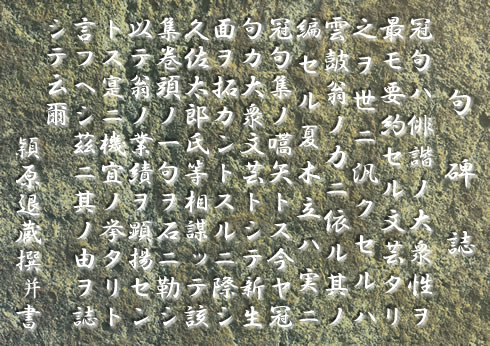 句碑誌
冠句ハ俳諧ノ大衆性ヲ
最モ要約セル文芸タリ
之ヲ世ニ汎クセルハ
雲皷翁ノ力ニ依ル其ノ
編セル夏木立ハ実ニ
冠句集ノ嚆矢トス今ヤ冠
句カ大衆文芸トシテ新生
面ヲ拓カントスルニ際シ
久佐太郎氏等相謀ッテ該
集巻頭ノ一句ヲ石ニ勒シ
以テ翁ノ業績ヲ顕揚セン
トス寔ニ機宜ノ挙タリト
言フヘシ茲ニ其ノ由ヲ誌
シテ云爾
穎原退蔵撰并書